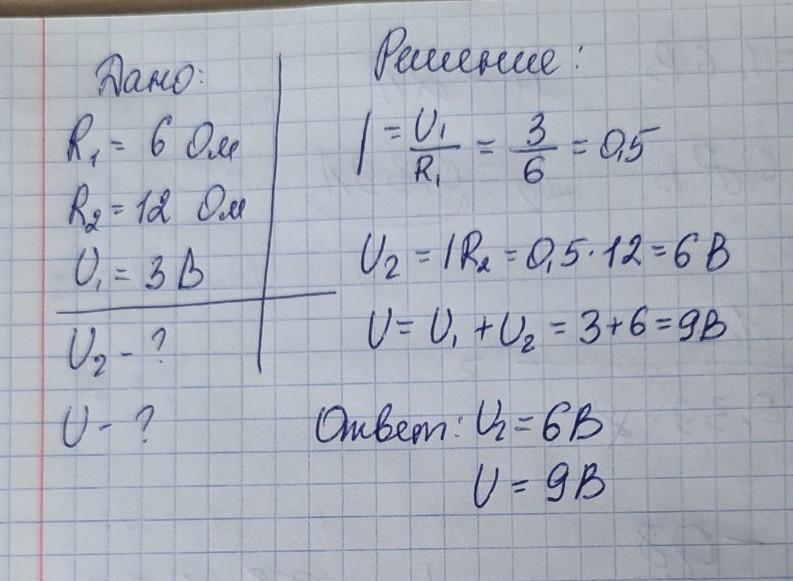 Дано:
R₁ = 6 Ом
R₂ = 12 Ом
U₁ = 3 В
U₂ - ?
U - ?
Решение:
I = U₁/R₁ = 3/6 = 0,5
U₂ = IR₂ = 0,5 · 12 = 6 В
U = U₁ + U₂ = 3 + 6 = 9В
Ответ: U₂ = 6В
U = 9В